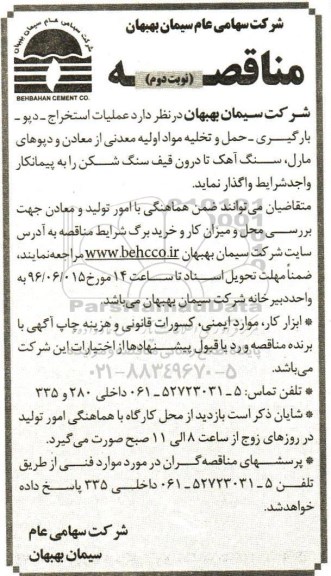 شرکت سهامی عام سیمان بهبهان
شرکت سهامی عام سیمان بهبهان
BEHBAHAN CEMENT CO.
مناقصه
(نوبت دوم)
شرکت سیمان بهبهان در نظر دارد عملیات استخراج - دپو -
بارگیری - حمل و تخلیه مواد اولیه معدنی از معادن و دپوهای
مارل، سنگ آهک تا درون قیف سنگ شکن را به پیمانکار
واجدشرایط واگذار نماید.
متقاضیان می‌توانند ضمن هماهنگی با امور تولید و معادن جهت
بررسی محل و میزان کار و خرید برگ شرایط مناقصه به آدرس
سایت شرکت سیمان بهبهان www.behcco.ir مراجعه‌نمایند،
ضمناً مهلت تحویل اسناد تا ساعت ۱۴ مورخ ۹۶/۰۶/۰۱۵ به
واحد دبیرخانه شرکت سیمان بهبهان می‌باشد.
* ابزار کار، موارد ایمنی، کسورات قانونی و هزینه چاپ آگهی با
برنده مناقصه و رد یا قبول پیشنهادها از اختیارات این شرکت
می‌باشد.
۰۲۱-۸۸۳۴۹۶۷۰-۵
* تلفن تماس: ۵ ـ ۵۲۷۲۳۰۳۱ ـ ۰۶۱ داخلی ۲۸۰ و ۳۳۵
* شایان ذکر است بازدید از محل کارگاه با هماهنگی امور تولید
در روزهای زوج از ساعت ۸ الی ۱۱ صبح صورت می‌گیرد.
* پرسشهای مناقصه‌گران در مورد موارد فنی از طریق
تلفن ۵ ـ ۵۲۷۲۳۰۳۱ ـ ۰۶۱ داخلی ۳۳۵ پاسخ داده
خواهد شد.
شرکت سهامی عام
سیمان بهبهان